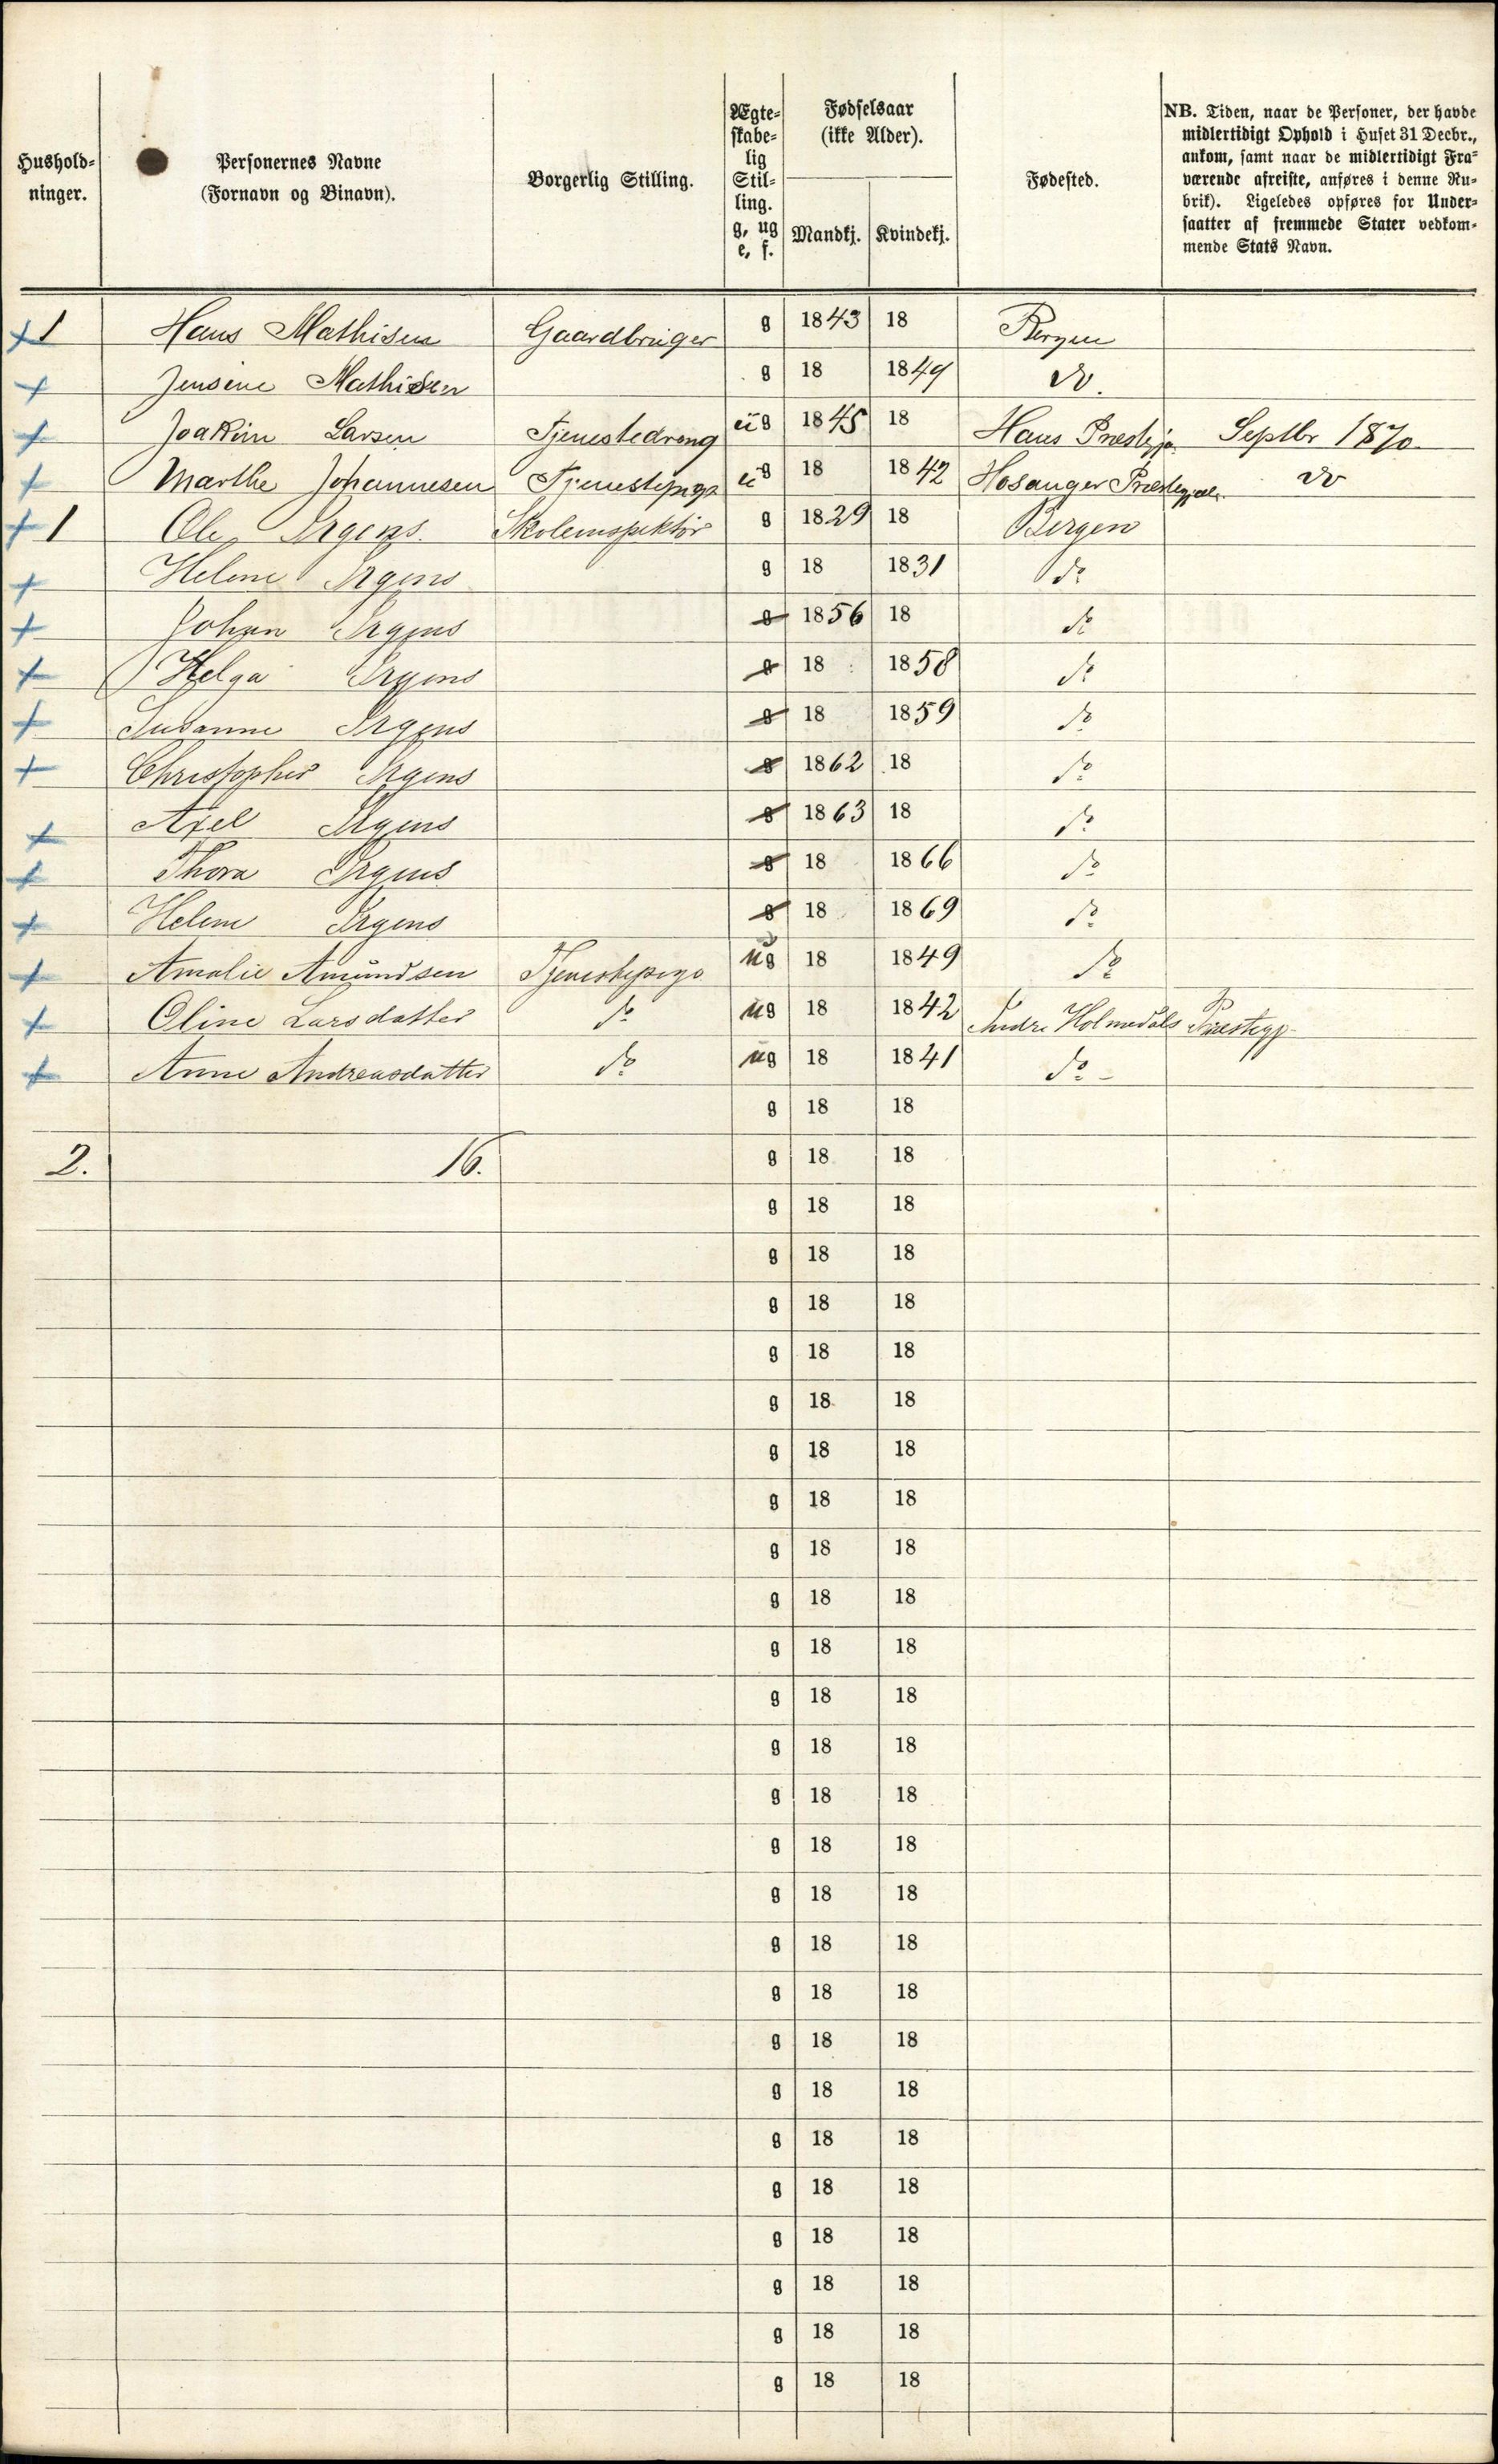 Hushold-
ninger.
Personernes Navne
(Fornavn og Binavn).
Borgerlig Stilling.
Ægte-
skabe-
lig
Stil-
ling.
g, ug
e, f.
Fødselsaar
(ikke Alder).
Mandkj. Kvindekj.
Fødested.
NB. Tiden, naar de Personer, der havde
midlertidigt Ophold i Huset 31 Decbr.,
ankom, samt naar de midlertidigt Fra-
værende afreiste, anføres i denne Ru-
brik). Ligeledes opføres for Under-
saatter af fremmede Stater vedkom-
mende Stats Navn.
1 Hans Mathisen Gaardbruger g 1843 18 Bergen
Jensine Mathisen g 18 1849 do.
Joakim Larsen Tjenestedreng ug 1845 18 Haus Prestegj. Septbr 1870.
Marthe Johannesen Tjenestepige ug 18 1842 Hosanger Præstegjæld. do
1 Ole Irgens. Skoleinspektör g 1829 18 Bergen
Helene Irgens g 18 1831 do
Johan Irgens g 1856 18 do
Helga Irgens g 18 1858 do
Susanne Irgens g 18 1859 do
Christopher Irgens g 1862 18 do
Axel Irgens g 1863 18 do
Thora Irgens g 18 1866 do
Helene Irgens g 18 1869 do
Amalie Amundsen Tjenestepige ug 18 1849 do
Oline Larsdatter do ug 18 1842 Indre Holmedals Præstegj.
Anne Andreasdatter do ug 18 1841 do -
g 18 18
2. 16. g 18 18
g 18 18
g 18 18
g 18 18
g 18 18
g 18 18
g 18 18
g 18 18
g 18 18
g 18 18
g 18 18
g 18 18
g 18 18
g 18 18
g 18 18
g 18 18
g 18 18
g 18 18
g 18 18
g 18 18
g 18 18
g 18 18
g 18 18
g 18 18
g 18 18
g 18 18